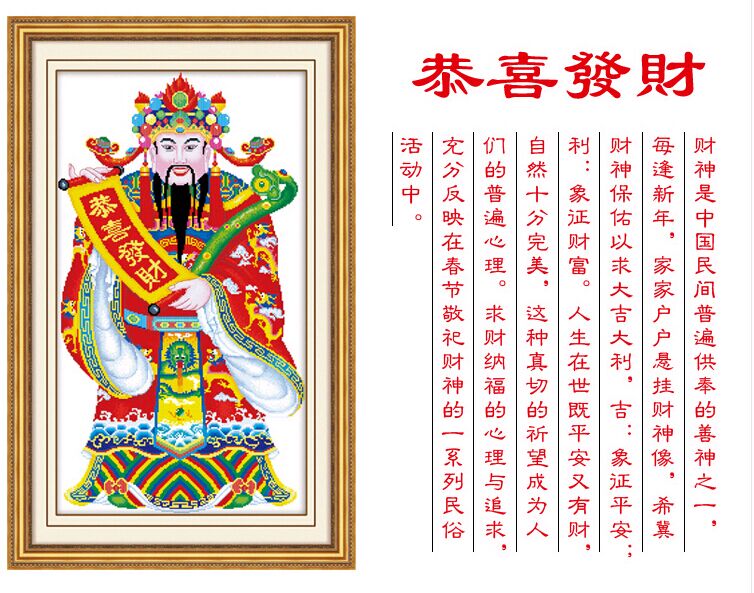 恭喜發財
恭喜發財
财神是中国民间普遍供奉的善神之一，
每逢新年，家家户户悬挂财神像，希冀
财神保佑以求大吉大利，吉：象征平安；
利：象征财富。人生在世既平安又有财，
自然十分完美，这种真切的祈望成为人
们的普遍心理。求财纳福的心理与追求，
充分反映在春节敬祀财神的一系列民俗
活动中。